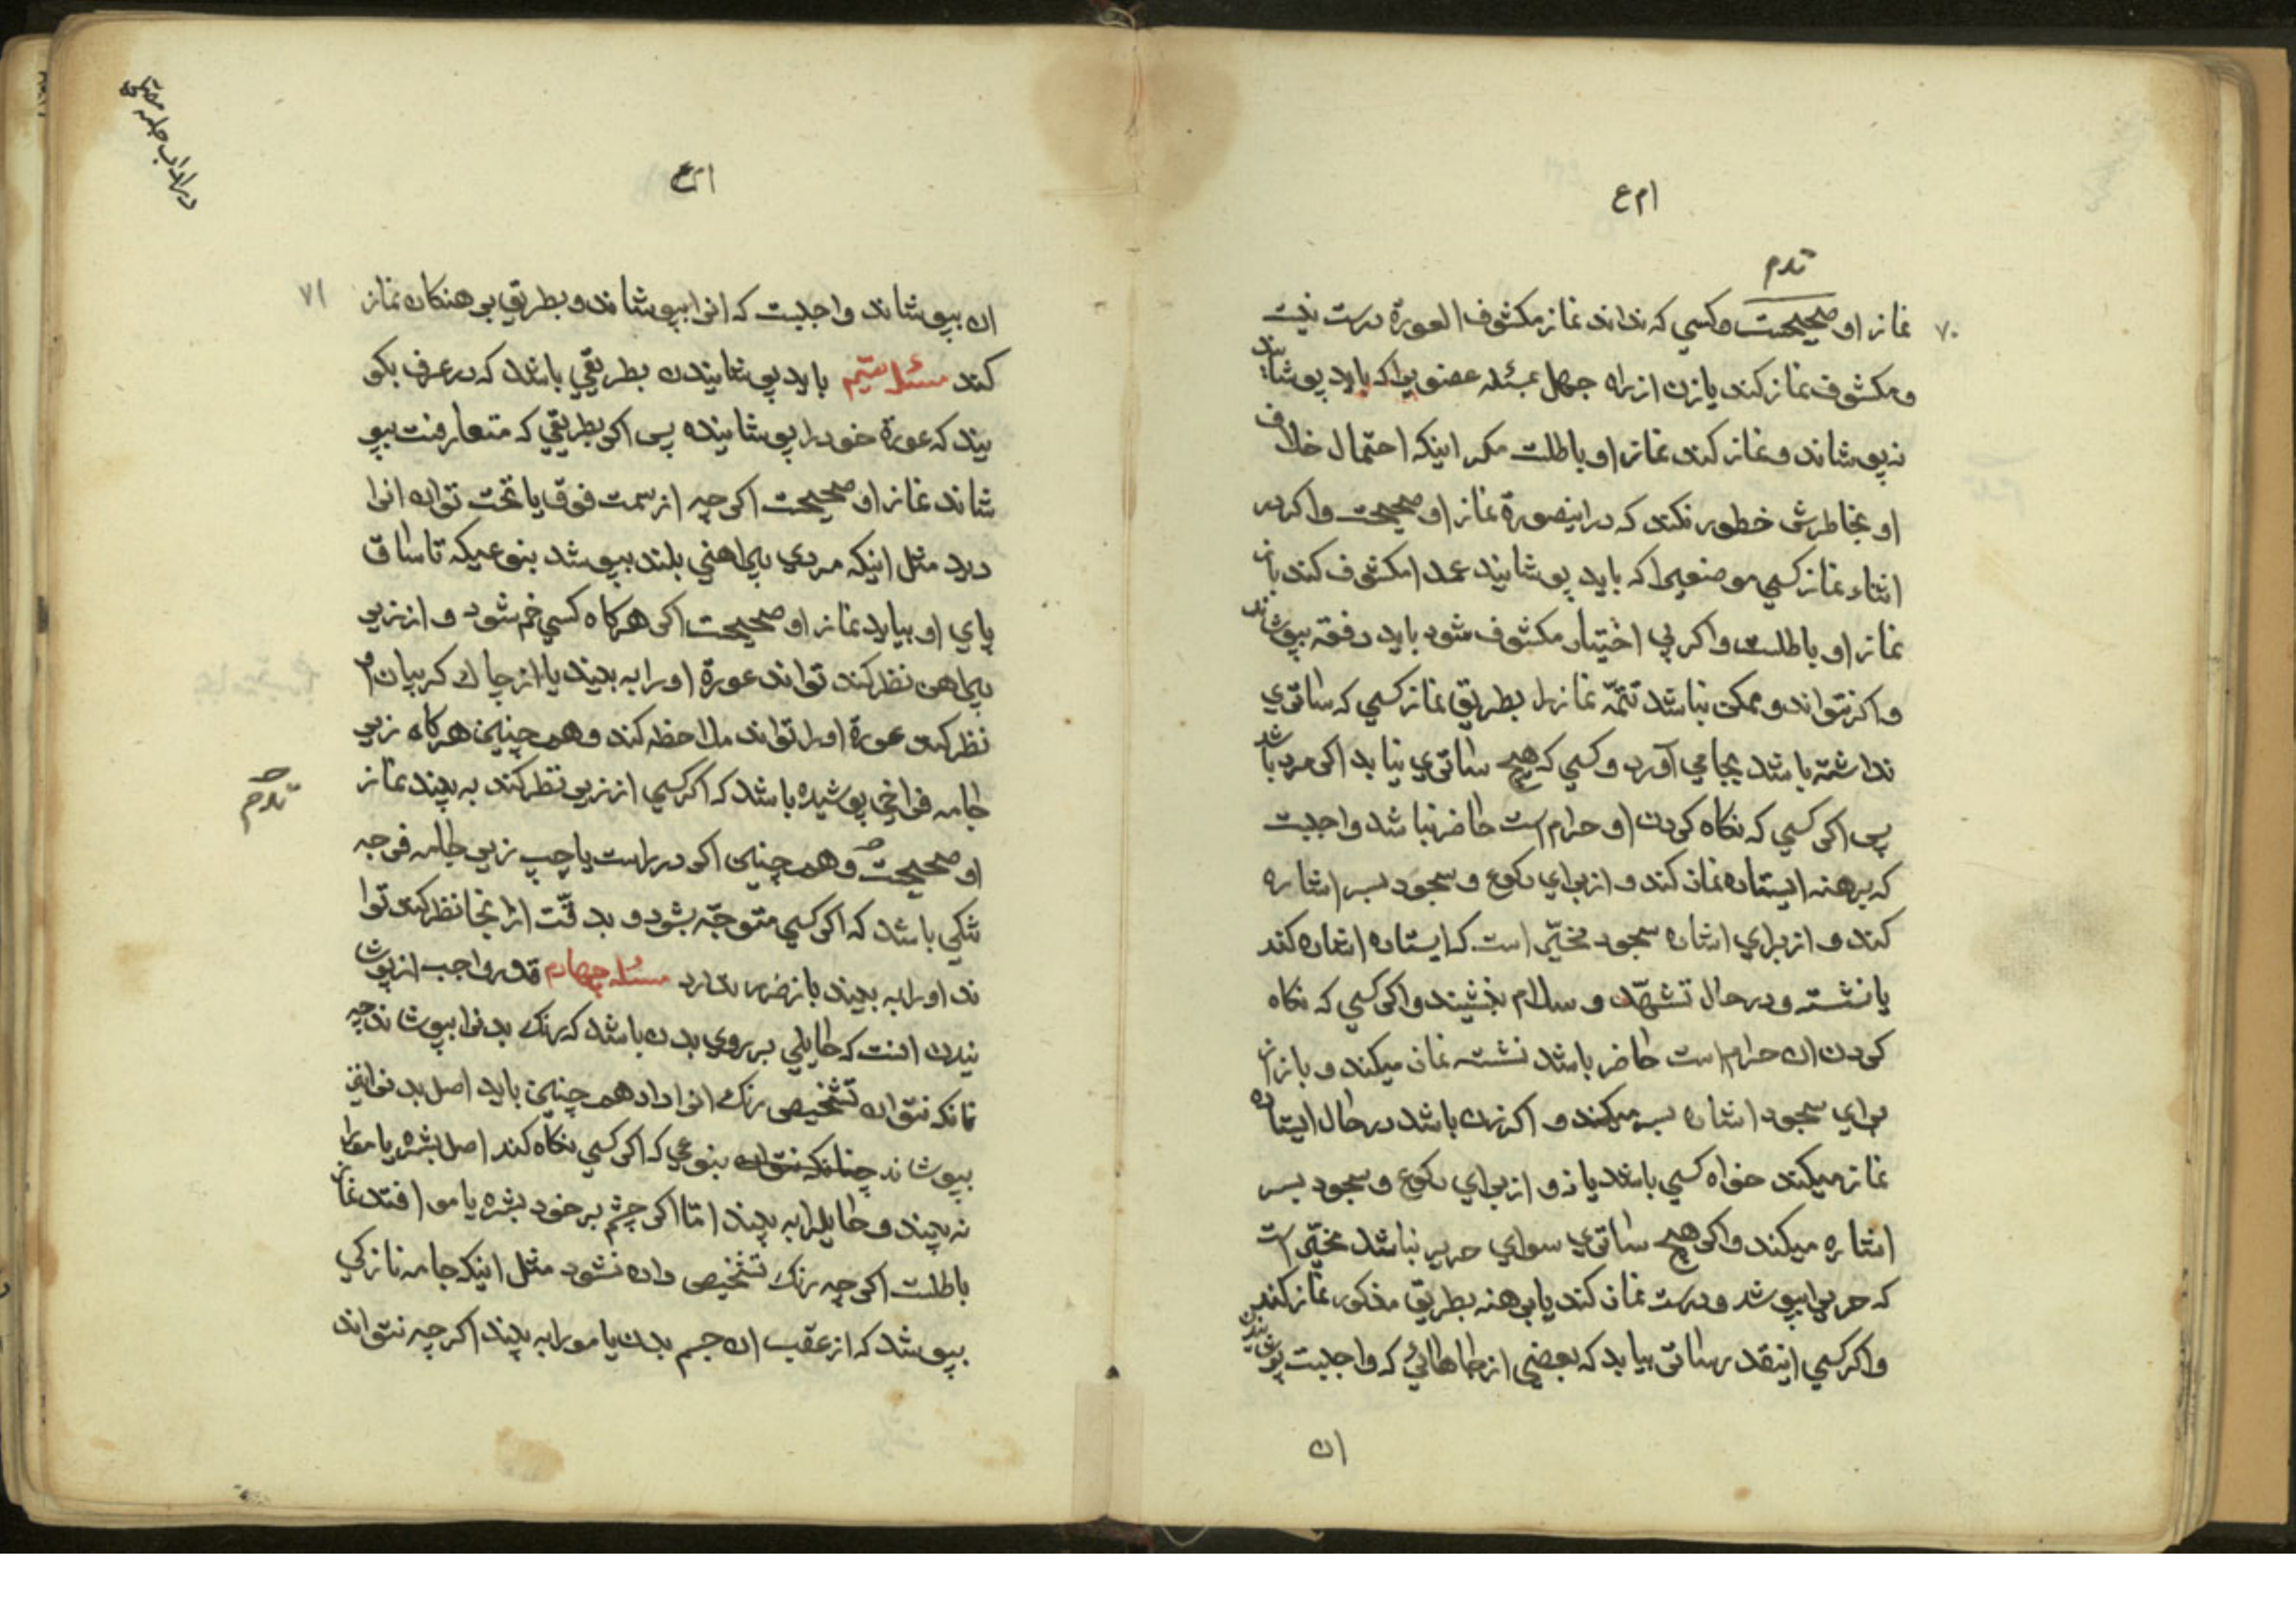 ام ع
ندم
۷۰
نماز او صحیحست و کسی که نداند نماز مکشوف العورة درست نیست
و مکشوف نماز کند یا زن از راه جهل بمسئله عضویرا که باید پوشاند
نه پوشاند و نماز کند نماز او باطلست مکر اینکه احتمال خلاف
او بخاطرش خطور نکند که در اینصورة نماز او صحیحست و اکر در
اثناء نماز کسی موضعیرا که باید پوشانید عمدا مکشوف کند باز
نماز او باطلست و اکر بی اختیار مکشوف شود باید دفعة بپوشاند
و اکر نتواند و ممکن نباشد تتمّه نماز را بطریق نماز کسی که ساتری
نداشته باشد بجا می آورد و کسی که هیچ ساتری نیابد اکر مرد باشد
پس اکر کسی که نکاه کردن او حرام است حاضر نباشد واجبست
که برهنه ایستاده نماز کند و از برای رکوع و سجود بسر اشاره
کند و از برای اشاره سجود مخیّر است که ایستاده اشاره کند
یا نشسته و در حال تشهّد و سلام بنشیند و اکر کسی که نکاه
کردن ان حرام است حاضر باشد نشسته نماز میکند و باز از
برای سجود اشاره بسر میکند و اکر زن باشد در حال ایستاده
نماز میکند خواه کسی باشد یا نه و از برای رکوع و سجود بسر
اشاره میکند و اکر هیچ ساتری سوای حریر نباشد مخیّر است
که حریر را بپوشد و درست نماز کند یا برهنه بطریق مذکور نماز کند
و اکر کسی اینقدر ساتر بیابد که بعضی از جاهائی که واجبست پوشانیدن
ان
ام ع
۷۱
ان بپوشاند واجبست که انرا بپوشاند و بطریق برهنکان نماز
کند مسئله سیّم باید پوشانیدن بطریقی باشد که در عرف بکو
یند که عورة خود را پوشانیده پس اکر بطریقی که متعارفست بپو
شاند نماز او صحیحست اکر چه از سمت فوق یا تحت توان انرا
دید مثل اینکه مردی پیراهنی بلند بپوشد بنوعیکه تا ساق
پای او بیاید نماز او صحیحست اکر هرکاه کسی خم شود و از زیر
پیراهن نظر کند تواند عورة او را به بیند یا از چاک کریبان او
نظر کند عورة او را تواند ملاحظه کند و همچنین هرکاه زنی
جامه فراخی پوشیده باشد که اکر کسی از زیر نظر کند به بیند نماز
او صحیحست و همچنین اکر در راست یا چپ زیر جامه فرجه
تنکی باشد که اکر کسی متوجّه بشود و بدقّت از انجا نظر کند توا
ند او را به بیند باز ضرر ندارد مسئله چهارم قدر واجب از پوشا
نیدن انست که حایلی بر روی بدن باشد که رنک بدنرا بپوشاند چه
نانکه نتوان تشخیص رنک انرا داد همچنین باید اصل بدنرا نیز
بپوشاند چنانکه نتوان بنوعی که اکر کسی نکاه کند اصل بشره یا مو را
نه بیند و حایل را به بیند امّا اکر چشم بر خود بشره یا مو افتد نماز
باطلست اکر چه رنک تشخیص داده نشود مثل اینکه جامه نازکی
بپوشد که از عقب ان جسم بدن یا مو را به بیند اکر چه نتواند